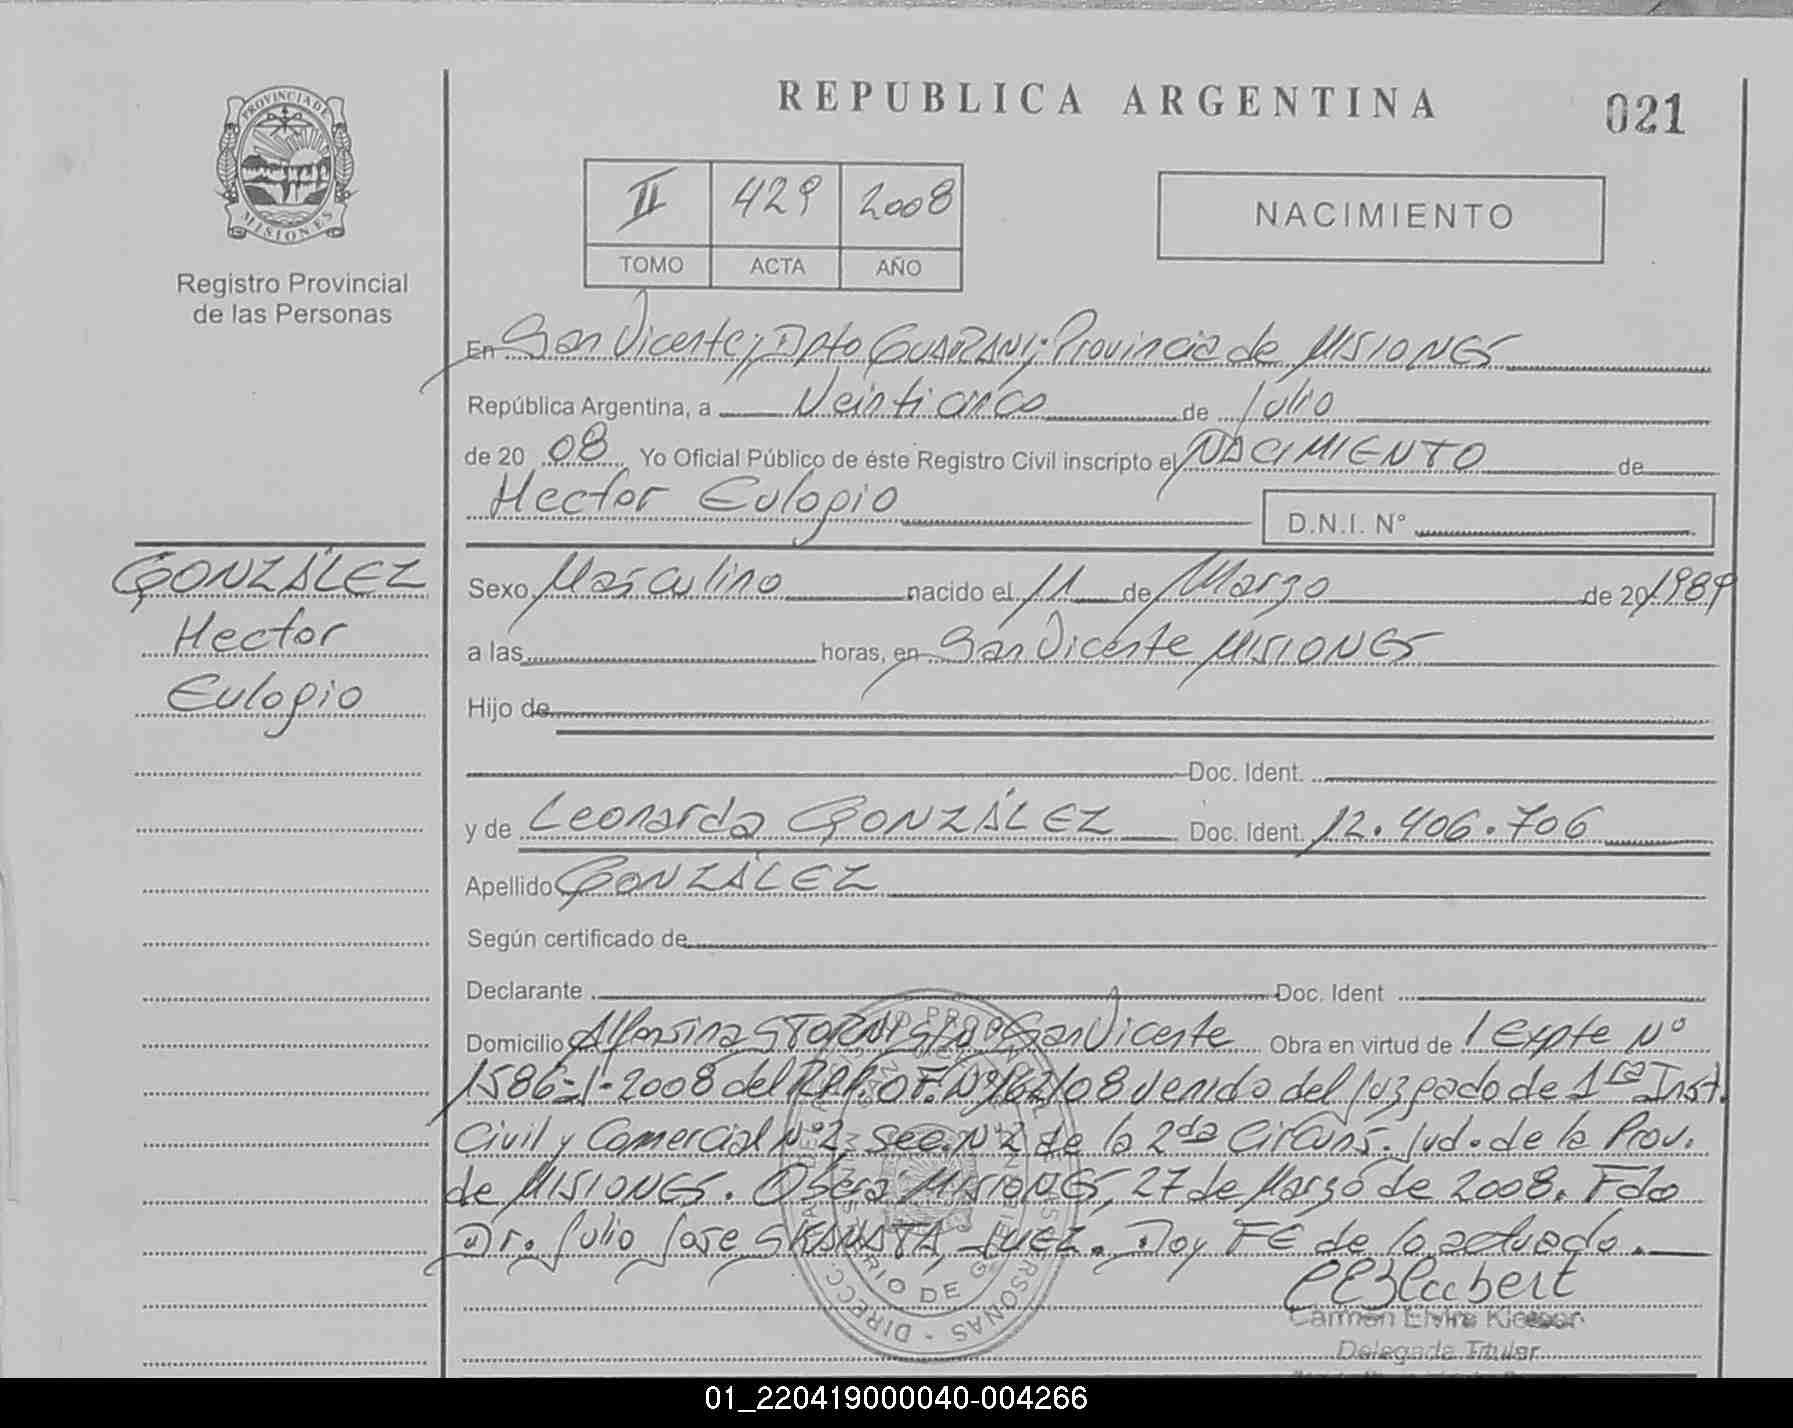 REPUBLICA ARGENTINA
021
PROVINCIA DE
MISIONES
Registro Provincial
de las Personas
II 429 2008
TOMO ACTA AÑO
NACIMIENTO
En San Vicente; Dpto GUARANI; Provincia de MISIONES
República Argentina, a Veinticinco de Julio
de 20 08 Yo Oficial Público de éste Registro Civil inscripto el NACIMIENTO de
Hector Eulogio
D.N.I. N°
GONZÁLEZ
Hector
Eulogio
Sexo Masculino nacido el 11 de Marzo de 20 1989
a las horas, en San Vicente MISIONES
Hijo de
Doc. Ident.
y de Leonarda GONZÁLEZ Doc. Ident. 12.406.706
Apellido GONZÁLEZ
Según certificado de
Declarante Doc. Ident
Domicilio Alfonsina STORNI S/Nº San Vicente Obra en virtud de Expte Nº
1586-J-2008 del R.P.P. OF. Nº 162/08 venido del Juzgado de 1ra Inst.
Civil y Comercial Nº 2, Sec. Nº 2 de la 2da Circuns. Jud. de la Prov.
de MISIONES. Oberá MISIONES, 27 de Marzo de 2008. Fdo
Dr. Julio Jose JUEZ. Doy FE de lo actuado.
Carmen Elvira
Delegada Titular
01_220419000040-004266